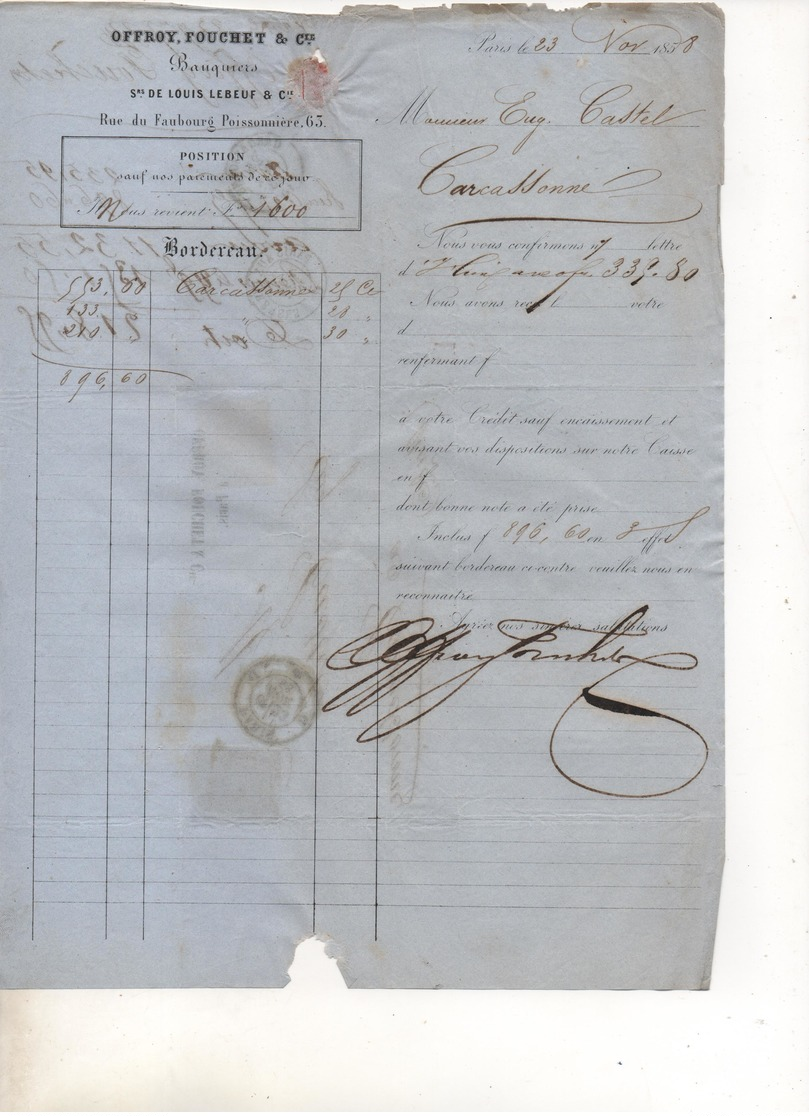 OFFROY, FOUCHET & Cie
Banquiers
Srs DE LOUIS LEBEUF & Cie
Rue du Faubourg Poissonnière, 63.
POSITION
sauf nos paiements de ce jour
Nous revient Fr 1600
Bordereau
553, 80 Carcassonne 25 Ct
133 " 28 "
210 30 "
896, 60
Paris le 23 Nov 1858
Monsieur Eug. Castel
Carcassonne
Nous vous confirmons lettre
d' 339.80
Nous avons reçu votre
d
renfermant f
à votre Crédit sauf encaissement et
avisant vos dispositions sur notre Caisse
en f
dont bonne note a été prise
Inclus f 896, 60 en 3 effets
suivant bordereau ci-contre veuillez nous en
reconnaitre
Agréez nos sincères salutations
Offroy Fouchet